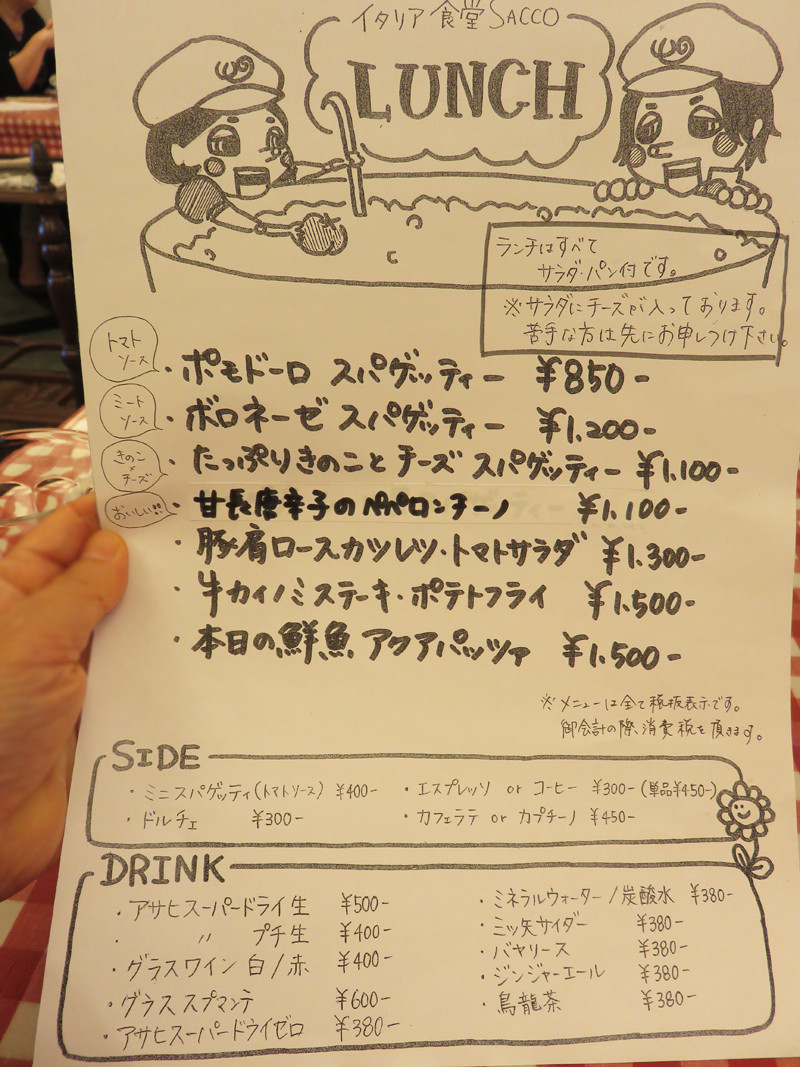 イタリア食堂SACCO
LUNCH
ランチはすべて
サラダ・パン付です。
※サラダにチーズが入っております。
苦手な方は先にお申しつけ下さい。
トマトソース
・ポモドーロ スパゲッティー ¥850-
ミートソース
・ボロネーゼ スパゲッティー ¥1.200-
きのこ×チーズ
・たっぷりきのことチーズ スパゲッティー ¥1.100-
おいしい!!
・甘長唐辛子のペペロンチーノ ¥1.100-
・豚肩ロースカツレツ・トマトサラダ ¥1.300-
・牛カイノミステーキ・ポテトフライ ¥1.500-
・本日の鮮魚 アクアパッツァ ¥1.500-
※メニューは全て税抜表示です。
御会計の際、消費税を頂きます。
SIDE
・ミニスパゲッティ(トマトソース) ¥400-
・ドルチェ ¥300-
・エスプレッソ or コーヒー ¥300-(単品¥450-)
・カフェラテ or カプチーノ ¥450-
DRINK
・アサヒスーパードライ生 ¥500-
・ 〃 プチ生 ¥400-
・グラスワイン 白/赤 ¥400-
・グラス スプマンテ ¥600-
・アサヒスーパードライゼロ ¥380-
・ミネラルウォーター/炭酸水 ¥380-
・三ッ矢サイダー ¥380-
・バヤリース ¥380-
・ジンジャーエール ¥380-
・烏龍茶 ¥380-